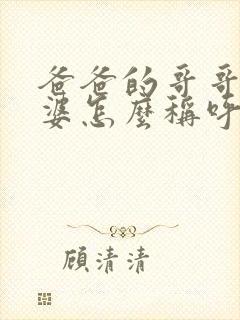 爸爸的哥哥
婆怎麼稱呼
顧清清